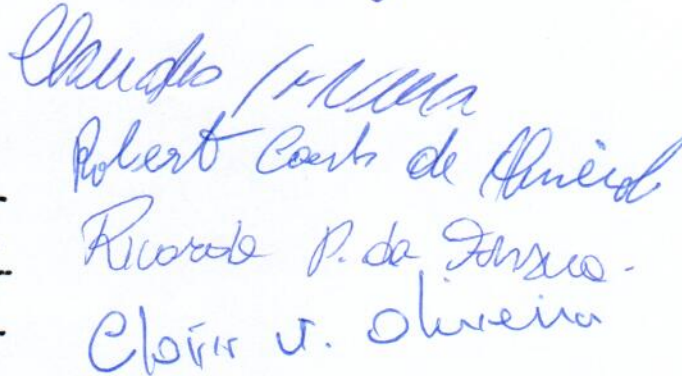 Claudio
Robert Costa de Almeida
Ricardo P. da Fonseca.
Clovis V. Oliveira